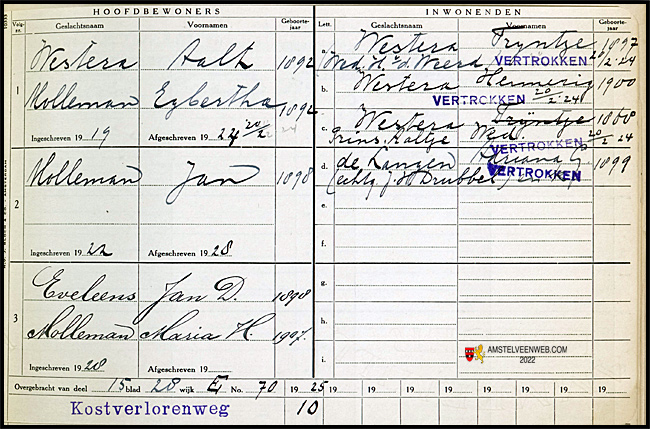 HOOFDBEWONERS
INWONENDEN
Volg-nr.
Geslachtsnaam
Voornamen
Geboorte-jaar
Lett.
Geslachtsnaam
Voornamen
Geboorte-jaar
1
Westera Aalt 1892
Molleman Egbertha 1892
Ingeschreven 19 19
Afgeschreven 19 24 20/2
a. Westera Tryntje 1897
Wed. H. v.d. Weerd VERTROKKEN 20/2-24
b. Westera Hermerig 1900
VERTROKKEN 20/2-24
c. Westera Tryntje 1868
Prins, Kaltje Wed. 20/2 24
VERTROKKEN
2
Molleman Jan 1898
Ingeschreven 19 22
Afgeschreven 19 28
d. de Langen Adriana G 1899
(echtg. J. H. Drubbel) VERTROKKEN
e.
f.
3
Eveleens Jan D. 1898
Molleman Maria H. 1997.
Ingeschreven 19 28
Afgeschreven 19
g.
h.
i.
AMSTELVEENWEB.COM
2022
Overgebracht van deel 15 blad 28 wijk E No. 70 19 25 19 19 19 19 19 19 19
Kostverlorenweg 10